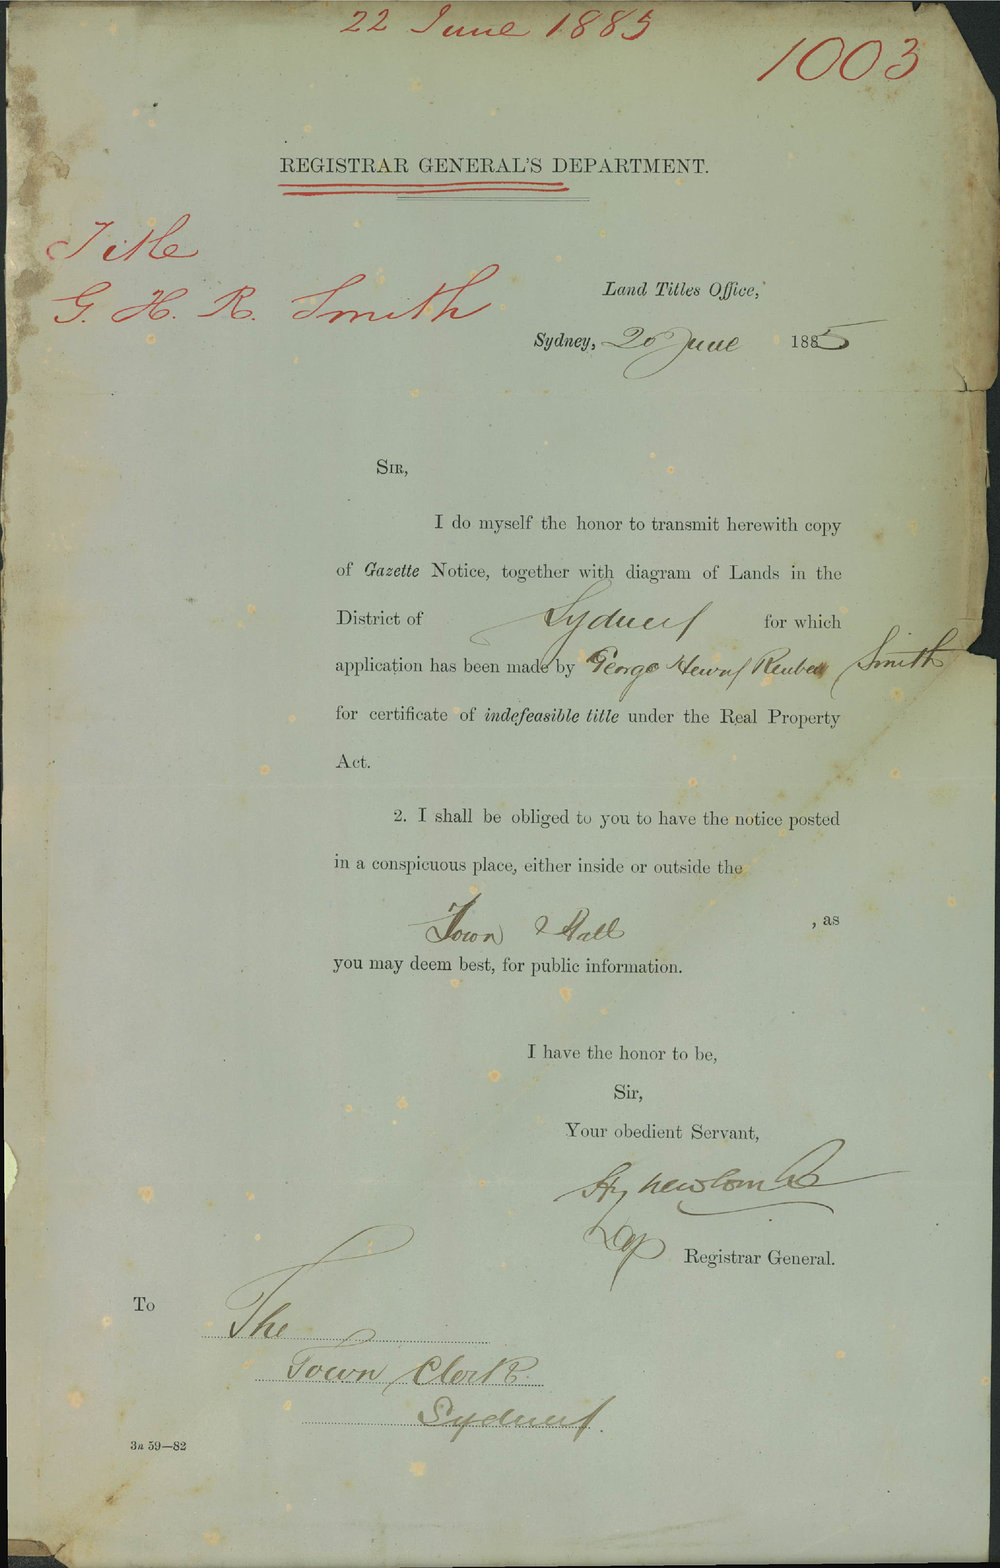 22 June 1885
1003
REGISTRAR GENERAL'S DEPARTMENT.
Title
G. H. R. Smith
Land Titles Office,
Sydney, 20 June 1885
SIR,
I do myself the honor to transmit herewith copy
of Gazette Notice, together with diagram of Lands in the
District of Sydney for which
application has been made by George Henry Reuben Smith
for certificate of indefeasible title under the Real Property
Act.
2. I shall be obliged to you to have the notice posted
in a conspicuous place, either inside or outside the
Town Hall , as
you may deem best, for public information.
I have the honor to be,
Sir,
Your obedient Servant,
Hy Newcombe
Dep Registrar General.
To
The
Town Clerk
Sydney.
3a 59—82